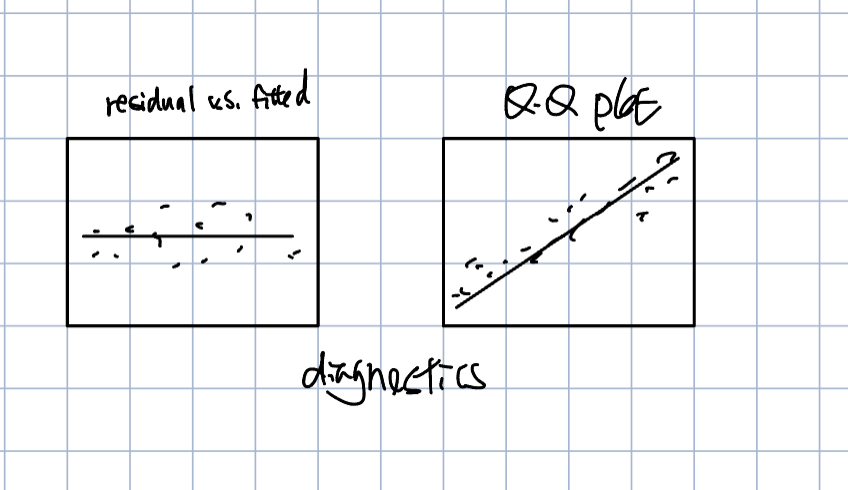 residual vs. fitted
Q-Q plot
diagnostics